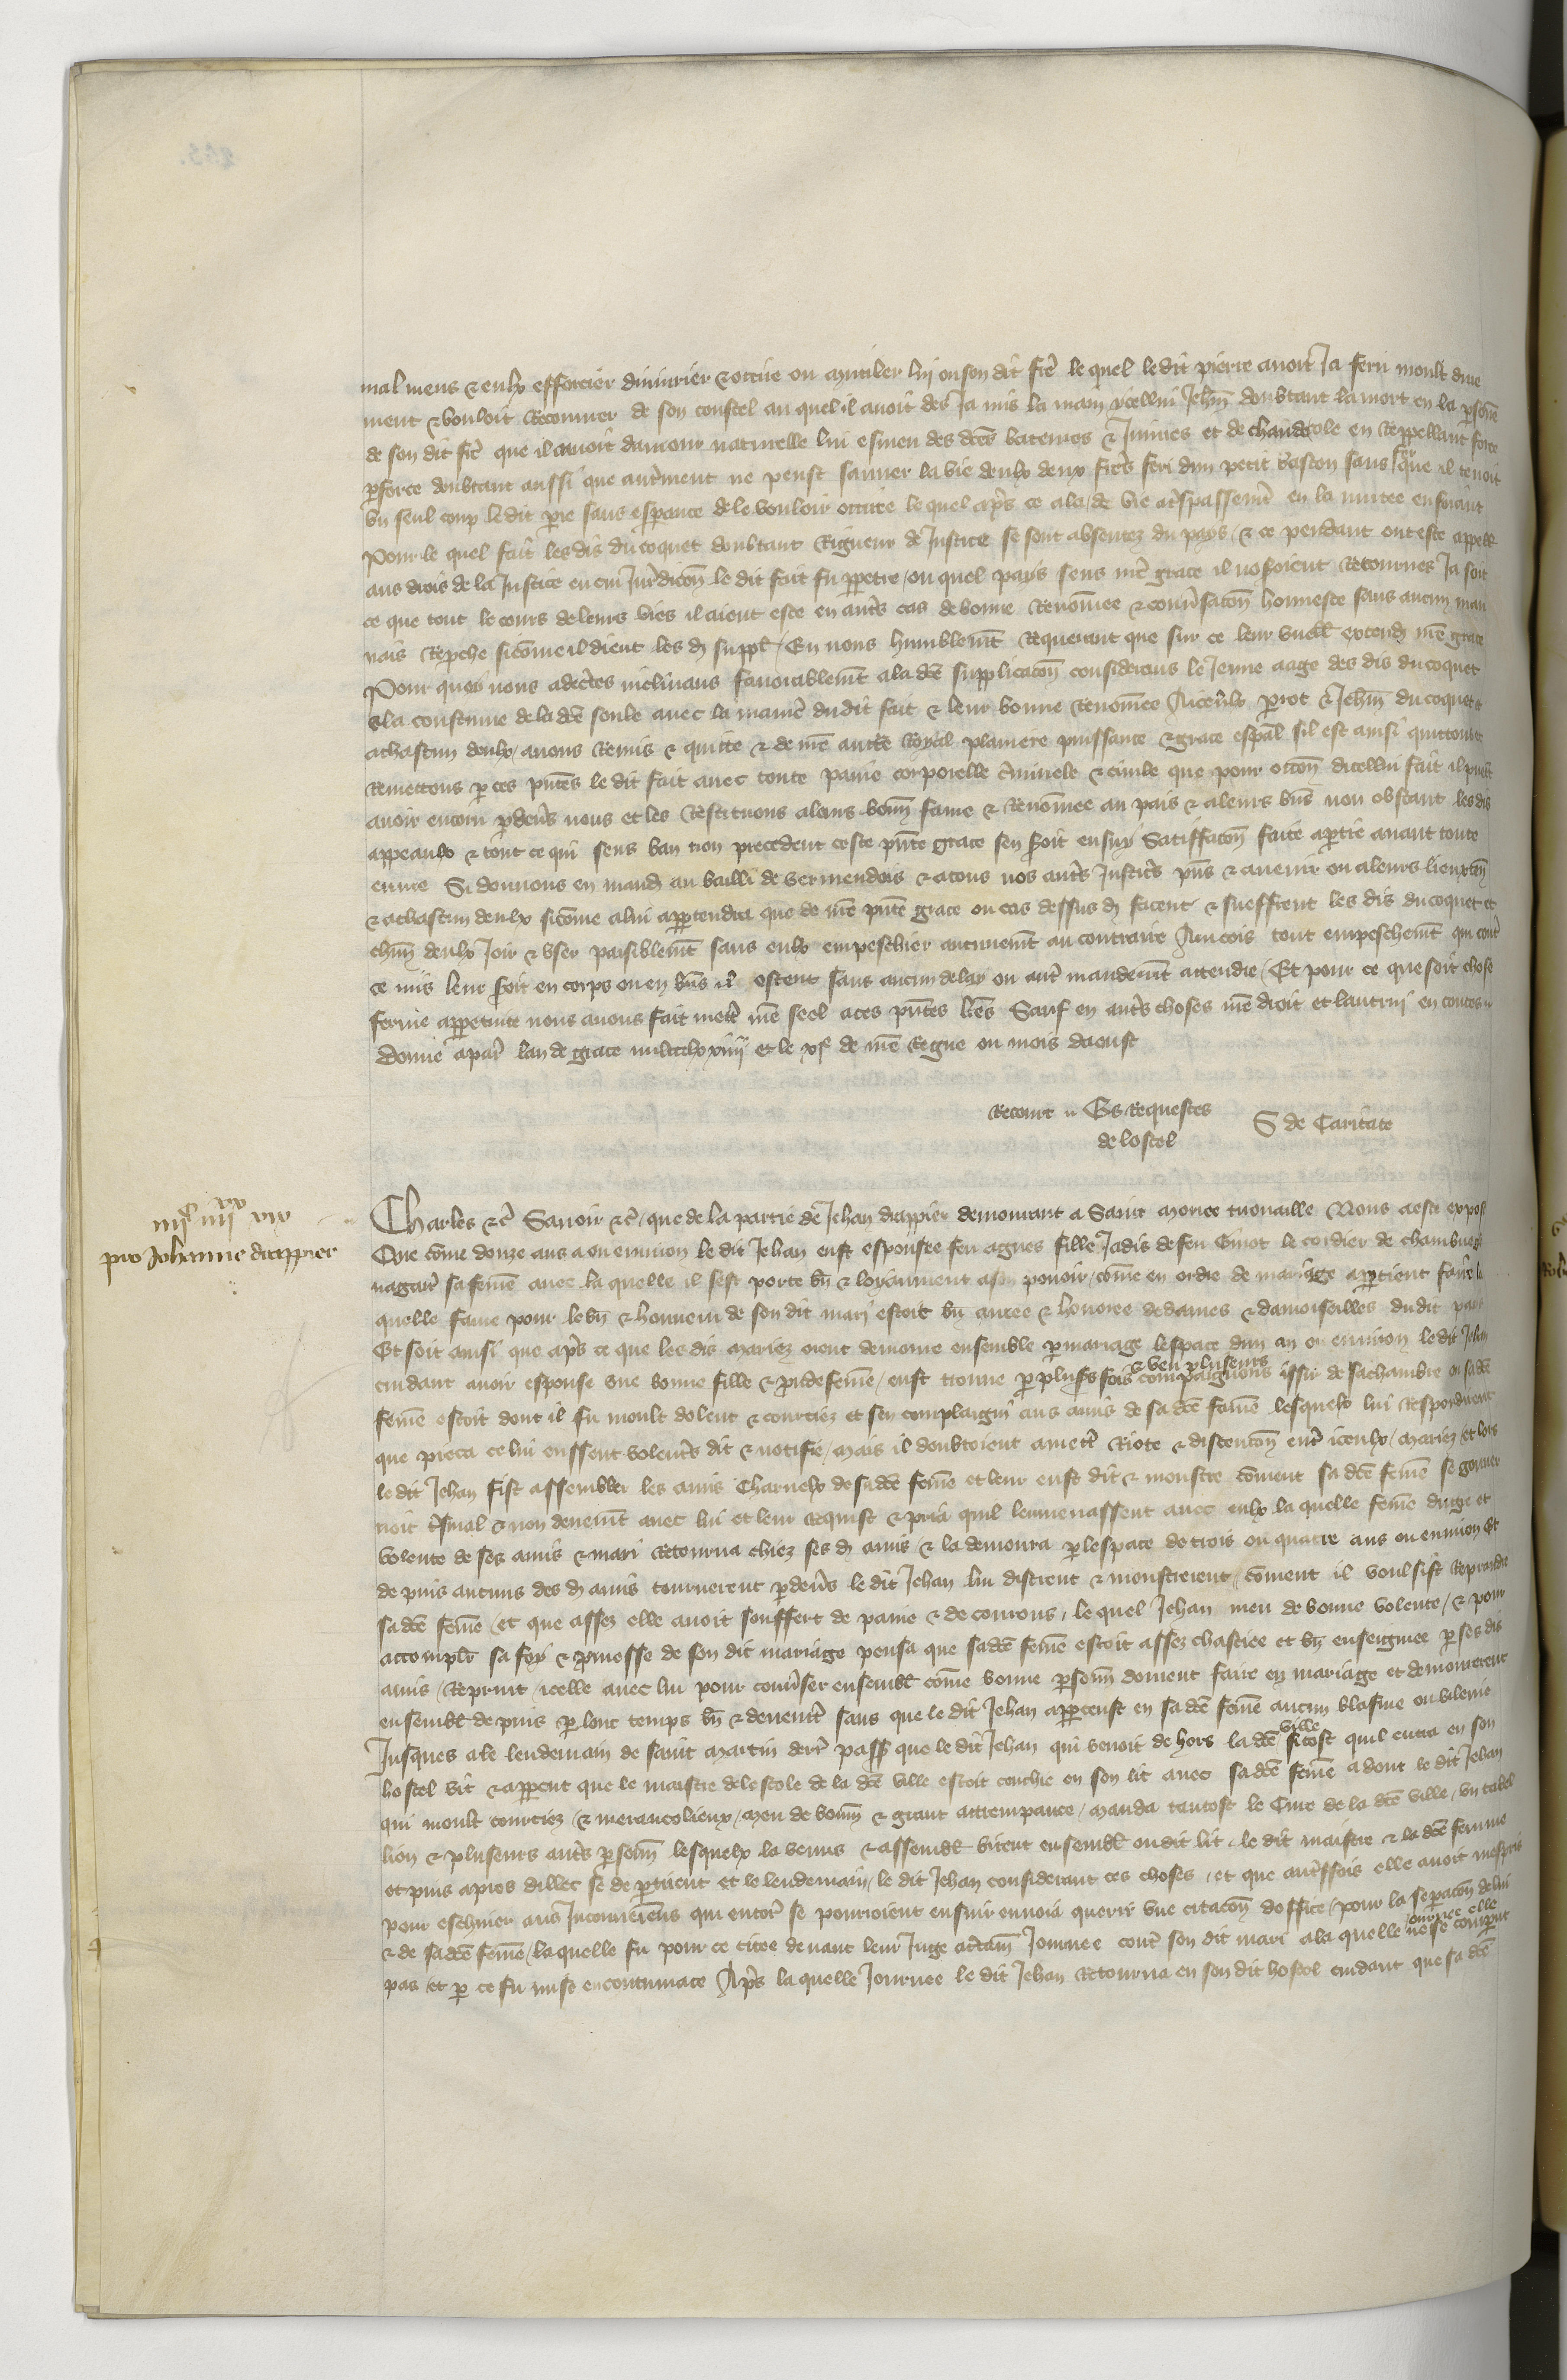 mal meus & eulx efforcier diniurier & occire ou mutiler lui ou son dit fre le quel ledit pierre auoit Ja feru moult dure
ment & vouloit Recouurer de son coustel au quel il auoit des Ja mis la main ycellui Jehan doubtant la mort en la persone
de son dit frere que il amoit damour naturelle lui esmeu des dces bateures & Iniures et de chaude cole en Reppellant force
par force doubtant aussi que autrement ne peust sauuer la vie deulx deux freres feri dun petit baston sans fer que il tenoit
vn seul coup le dit pre sans esperance de le vouloir occire le quel apres ce ala de vie a trespassement en la nuitee ensuiant
Pour le quel fait les dis du coquet doubtant Rigueur de Justice se sont absentez du pays / & ce pendant ont este appellez
aus drois de la Justice en cui Juridicon le dit fait fu perpetre / ou quel pays sens nre grace il noseroient Retourner Ja soit
ce que tout le cours de leurs vies il aient este en autres cas de bonne Renommee & conuersacon honneste sans aucun mau
uais Reproche si comme il dient les d supplians / En nous humblement Requerant que sur ce leur vueillons extendre nre grace
Pour quoy nous adcertes inclinans fauorablement a la dce supplicacon considerans le Jeune aage des dis du coquet
& la coustume de la dce foule auec la maniere du dit fait & leur bonne Renommee A iceulx perrot & Jehan du coquet &
a chascun deulx / auons Remis & quitte & de nre aucte Royal planiere puissance & grace espal sil est ainsi quittons &
Remettons par ces pntes le dit fait auec toute paine corporelle criminele & ciuile que pour occon dicellui fait il peuent
auoir encouru pardeuers nous et les Restituons a leurs bonne fame & Renommee au pais & a leurs biens non obstant les dis
appeaulx & tout ce qui sens ban non precedent ceste pnte grace sen seroit ensuy Satiffacon faite a partie auant toute
euure Si donnons en mandement au bailli de vermendois & a tous nos autres Justiciers pns & auenir ou a leurs lieuxtenans
& a chascun deulx si comme a lui appartendra que de nre pnte grace ou cas dessus d facent & sueffrent les dis du coquet et
chascun deulx Joir & vser paisiblement sans eulx empeschier aucunement au contraire Aincois tout empeschement qui contre
ce mis leur seroit en corps ou en biens ostent sans aucun delay ou autre mandement attendre / Et pour ce que soit chose
ferme a perpetuite nous auons fait mettre nre seel a ces pntes lres Sauf en autres choses nre droit et lautrui en toutes
Donne a paris lan de grace mil ccc lxxiiii et le xi de nre Regne ou mois daoust
Recourt Es Requestes
de lostel
S de Caritate
iiijc iiijxx xiv
pro Johanne drappier
Charles &c Sauoir &c / que de la partie de Jehan drappier demourant a Saint morice tironaille Nous a este expose
Que comme douze ans a ou enuiron le dit Jehan eust espousee feu agnes fille Jadis de feu Guiot le cordier de chambuegle
nagaires sa femme auec la quelle il sest porte bien & loyaument a son pouoir / comme en ordre de mariage appartient faire la
quelle fame pour le bien & honneur de son dit mari estoit bien amee & honoree de dames & damoiseilles du dit pais
Et soit ainsi que apres ce que les dis mariez orent demoure ensemble par mariage lespace dun an ou enuiron le dit Jehan
cuidant auoir espouse vne bonne fille & preudefemme / eust trouue par plusrs fois & veu pluseurs compaignons issir de sa chambre ou sa dce
femme estoit dont il fu moult dolent & courciez et sen complaigni aus amis de sa dce femme lesquelx lui Respondirent
que pieca ce lui eussent voluntiers dit & notifie / mais il doubtoient a mettre Riote & discencon entre iceulx / mariez / et lors
le dit Jehan fist assembler les amis charnelx de sa dce femme et leur eust dit & monstre comment sa dce femme se gouuer
noit tres mal & non deuement auec lui et leur Requist & pria quil lemmenassent auec eulx la quelle femme du gre et
volente de ses amis & mari Retourna chiez ses d amis / & la demoura par lespace de trois ou quatre ans ou enuiron Et
de puis aucuns des d amis tournerent pardeuers le dit Jehan lui distrent & monstrerent / comment il voulsist Reprandre
sa dce femme / et que assez elle auoit souffert de paine & de courous / le quel Jehan meu de bonne volente / & pour
accomplir sa foy & promesse de son dit mariage pensa que sa dce femme estoit assez chastiee et bien enseignee par ses dis
amis / Reprint / icelle auec lui pour conuerser ensemble comme bonne personnes doiuent faire en mariage et demourerent
ensemble de puis par lonc temps bien & deuement sans que le dit Jehan apperceust en sa dce femme aucun blasme ou vilenie
Jusques a le lendemain de saint martin derr passe que le dit Jehan qui venoit de hors la dce ville si tost quil entra en son
hostel vit & apperceut que le maistre de lescole de la dce ville estoit couchie en son lit auec sa dce femme a dont le dit Jehan
qui moult courciez / & merancolieux / meu de bonne & grant attrempance / manda tantost le Cure de la dce ville / vn tabel
lion & pluseurs autres personnes lesquelx la venus & assemblez virent ensemble ou dit lit / le dit maistre & la dce femme
et puis apres dillec se departirent et le lendemain / le dit Jehan considerant ces choses / et que autressois elle auoit mespris
pour escheuer aus Inconueniens qui encores se pourroient ensuir enuoia querir vne citacon doffice / pour la separacon de lui
& de sa dce femme / la quelle fu pour ce citee deuant leur Juge a certaine Journee contre son dit mari a la quelle Journee elle ne se comparut
pas et par ce fu mise en contumace Apres la quelle Journee le dit Jehan Retourna en son dit hostel cuidant que sa dce